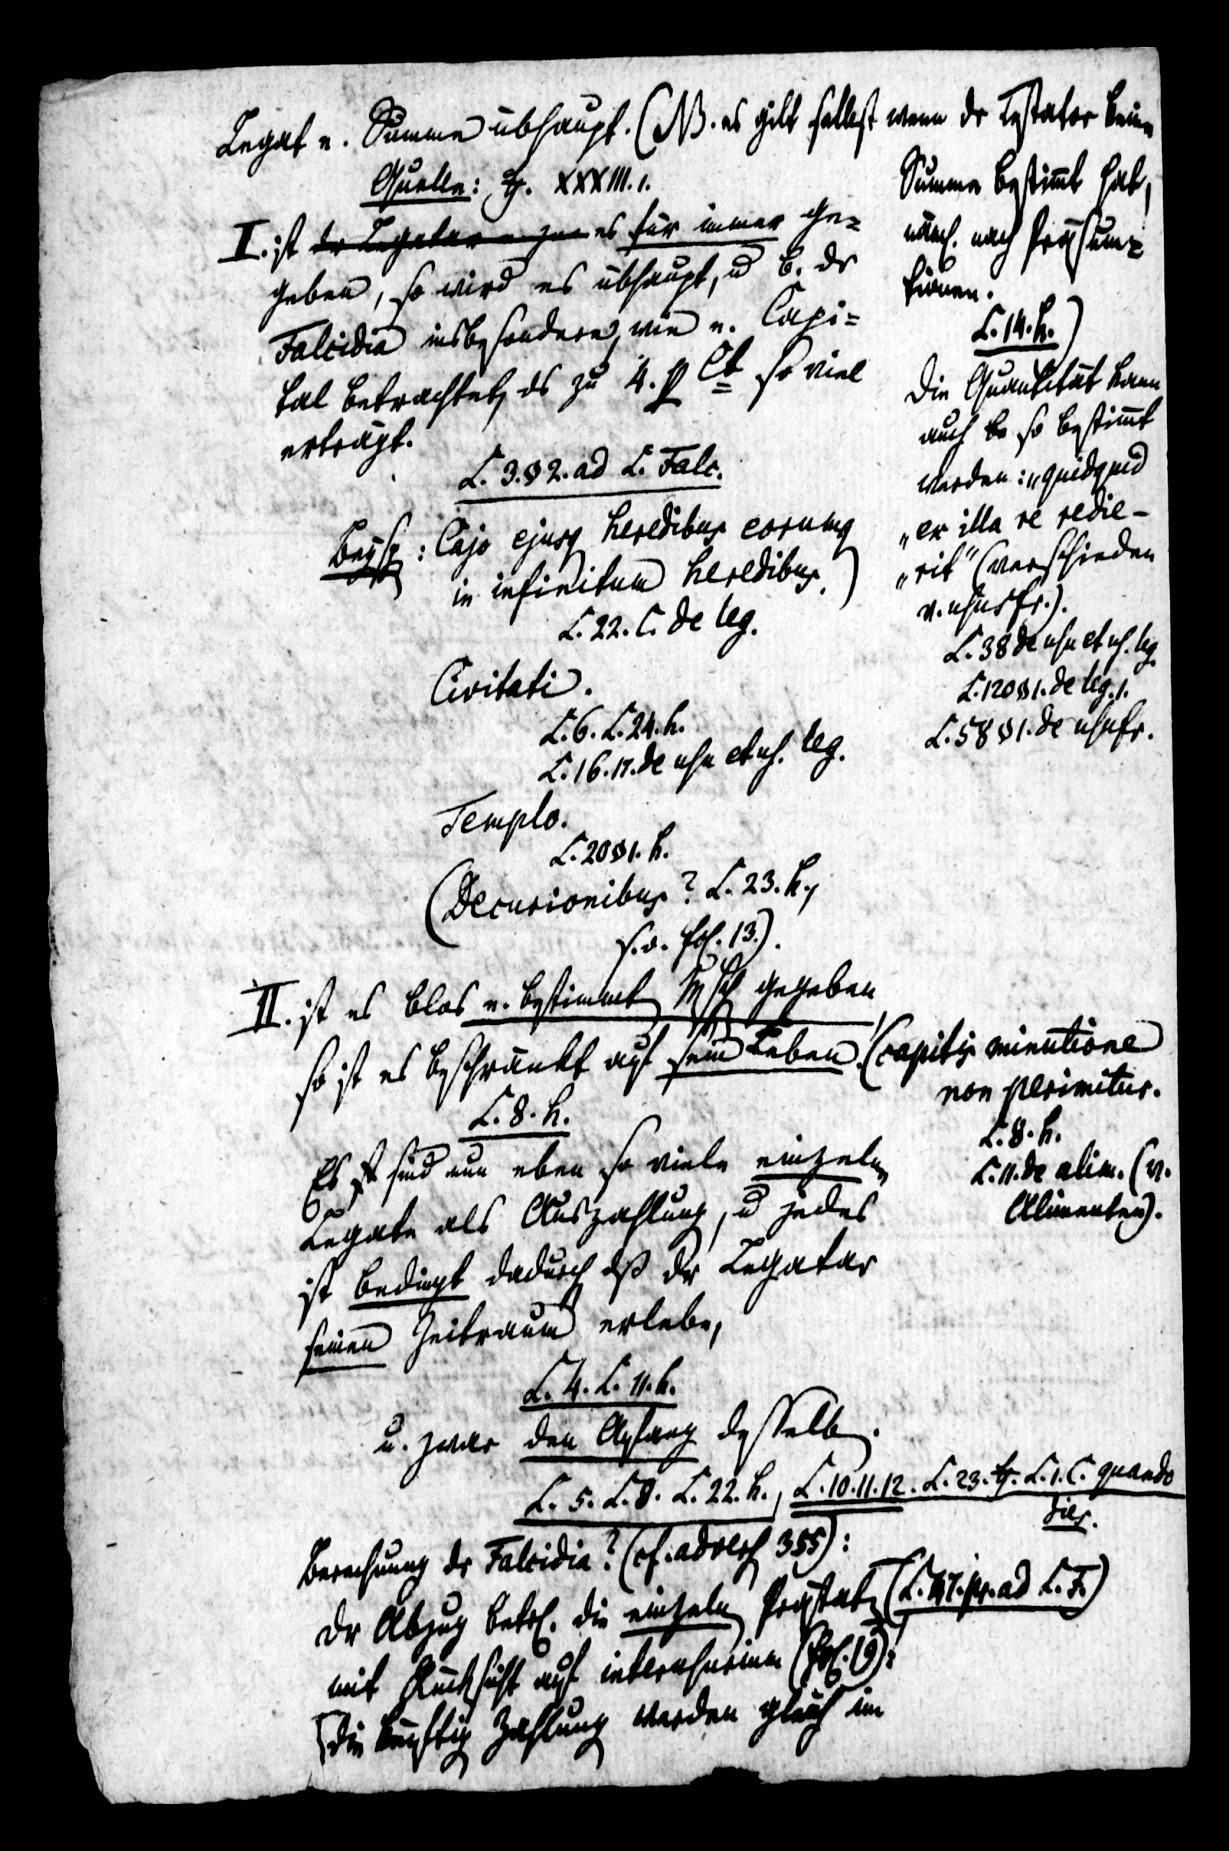 Legat e. Summe übhaupt. (NB. es gilt selbst wenn dr Testator keine
Summe bestimmt hat,
näml. nach Präsum=
tionen.
L. 14. h.)
Quelle: tt. XXXIII. 1.
I. ist dr Legatar es für immer ge=
geben, so wird es übhaupt, u b. dr
Falcidia insbesondere, wie e. Capi=
tal betrachtet, ds zu 4. p Ct so viel
erträgt.
L. 3. § 2. ad L. Falc.
Beysp: Cajo ejusq heredibus eorumq
in infinitum heredibus.)
L. 22. C. de leg.
Civitati.
L. 6. L. 24. h.
L. 16. 17. de usu et us. leg.
Templo.
L. 20 § 1. h.
(Decurionibus? L. 23. h.,
s. o. fol. 13.).
Die Quantität kann
auch so bestimmt
werden: „quidquid
„ex illa re redie-
„rit“ (verschieden
v. ususfr.).
L. 38 de usu et us. leg.
L. 120 § 1. de leg. 1.
L. 58 § 1. de usufr.
II. ist es blos e. bestimmt gegeben,
so ist es beschränkt auf sein Leben. (capitis minutione
non perimitur.
L. 8. h.
L. 11. de alim. (v.
Alimenten).
L. 8. h.
Es sind nun eben so viele einzeln
Legate als Auszahlung, u jedes
ist bedingt dadurch dß dr Legatar
seinen Zeitraum erlebe,
L. 4. L. 11. h.
u. zwar den Anfang desselb.
L. 5. L. 8. L. 22. h., L. 10. 11. 12. L. 23. tt. L. 1. C. quando
dies.
Berechnung dr Falcidia? (cf. advers 355):
Dr Abzug betrf. die einzeln Prästat. (L. 47. pr. ad L. F.)
mit Rücksicht auf interusurium (fol. 19):
[die künftig Zahlung werden gleich im